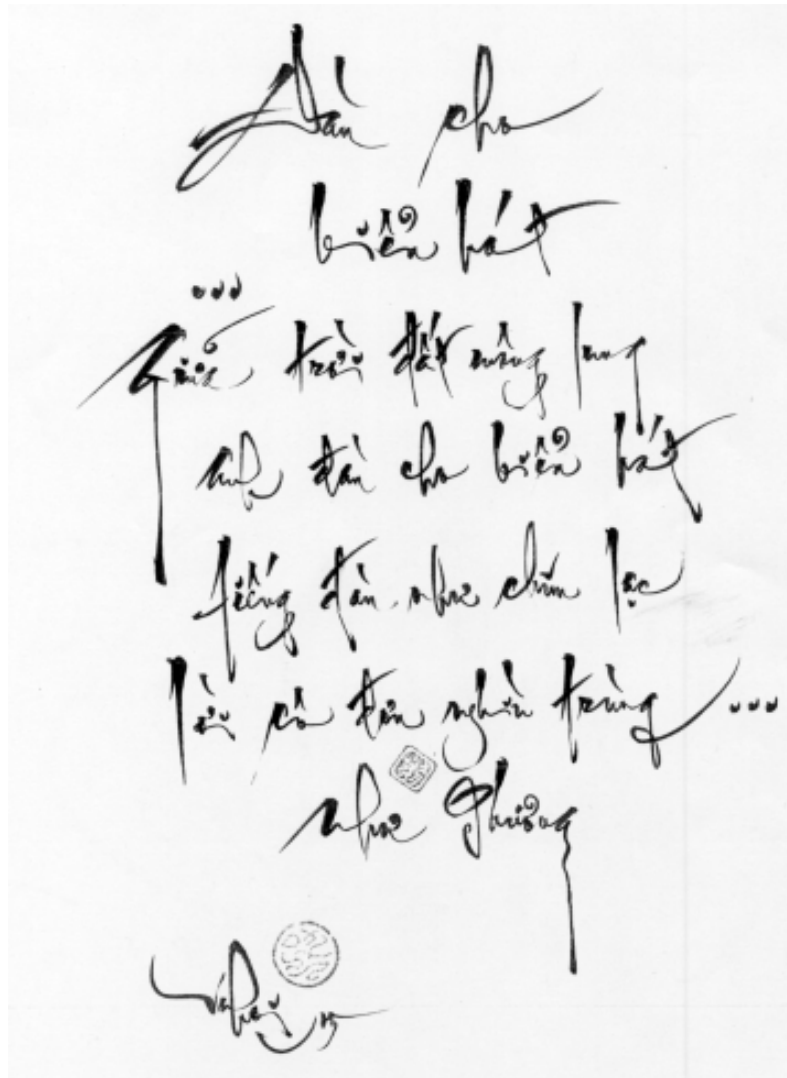 Đàn cho
biển hát
...
Giữa trời đất mông lung
đàn cho biển hát
tiếng đàn như chìm lạc
lời cô đơn nghìn trùng ...
Như Phương